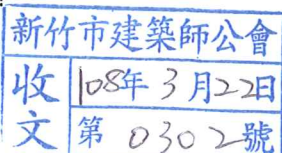 新竹市建築師公會
收文
108年3月22日
第0302號